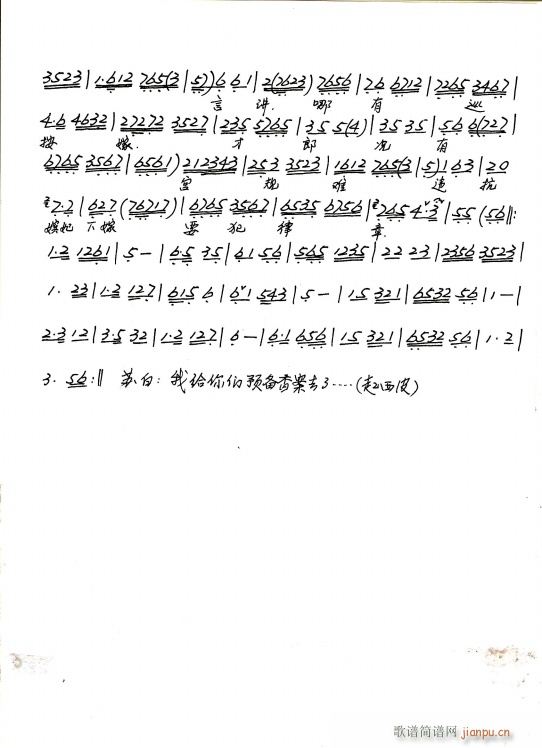 3523 | 1·612 765(3 | 5)) 6 6 1 | 2(7623) 7656 | 76 6712 | 7265 3467 |
言 讲. 哪 有 巡
4·6 4632 | 27272 3527 | 235 5765 | 35 5(4) | 35 35 | 56 6(727 |
按 嫁. 才 郎 况 有
6765 3567 | 6561) 212343 | 253 3523 | 1612 765(3 | 5) 1 63 | 20
宫 规 难 违 抗
7·2 | 627 (76717) | 6765 3567 | 6535 6756 | 765 4·3 | 55 (56 :||
嫔妃 下嫁 要 犯 律 章.
1·2 1261 | 5 - | 6·5 35 | 61 56 | 565 1235 | 22 23 | 2356 3523 |
1· 23 | 1·2 127 | 615 6 | 6 1 543 | 5 - | 15 321 | 6532 56 | 1 - |
2·3 12 | 3·5 32 | 1·2 127 | 6 - | 6·1 656 | 15 321 | 6532 56 | 1 · 2 |
3· 56 :|| 苏白: 我给你们预备香案去了····(起西皮)
歌谱简谱网
jianpu.cn